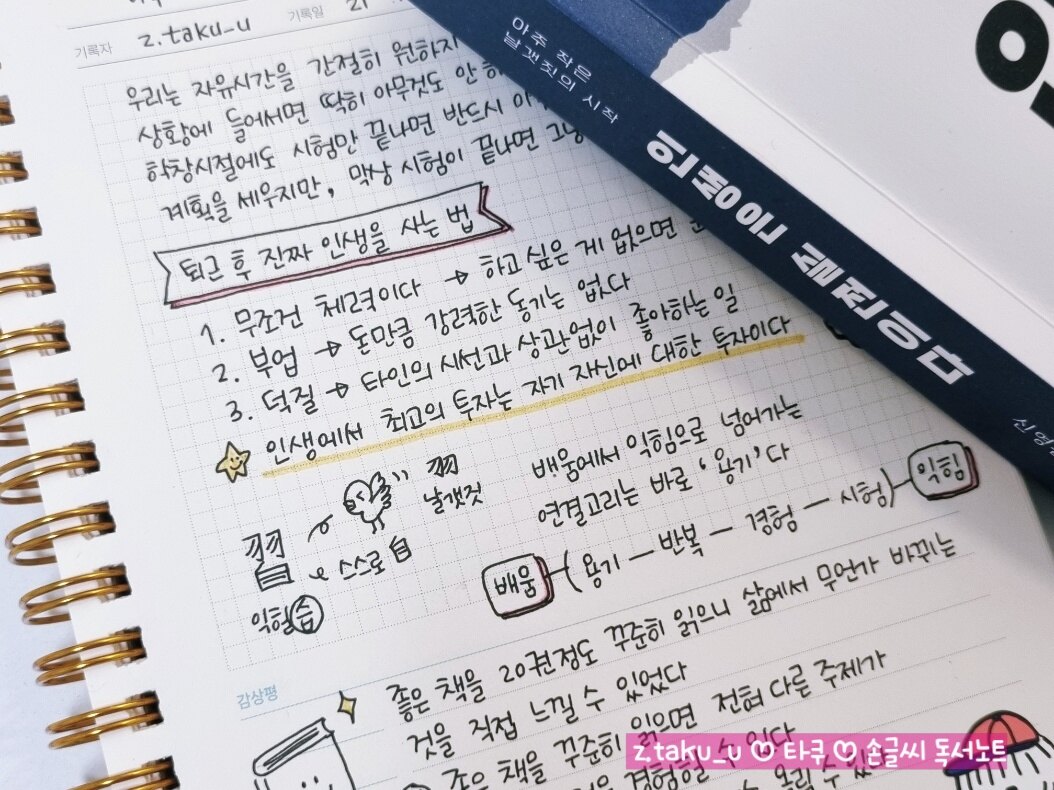 기록자 z.taku_u 기록일 21
우리는 자유시간을 간절히 원하지
상황에 들어서면 딱히 아무것도 안 하
학창시절에도 시험만 끝나면 반드시
계획을 세우지만, 막상 시험이 끝나면 그냥
퇴근 후 진짜 인생을 사는 법
1. 무조건 체력이다 → 하고 싶은 게 없으면
2. 부업 → 돈만큼 강력한 동기는 없다
3. 덕질 → 타인의 시선과 상관없이 좋아하는 일
인생에서 최고의 투자는 자기 자신에 대한 투자이다
배움에서 익힘으로 넘어가는
연결고리는 바로 '용기'다
羽 날갯짓
스스로 自
익힐 習
배움 - (용기 - 반복 - 경험 - 시험) - 익힘
감상평
좋은 책을 20권정도 꾸준히 읽으니 삶에서 무언가 바뀌는
것을 직접 느낄 수 있었다
좋은 책을 꾸준히 읽으면 전혀 다른 주제가
아주 작은
날갯짓의 시작
신영
z.taku_u ♡ 타큐 ♡ 손글씨 독서노트